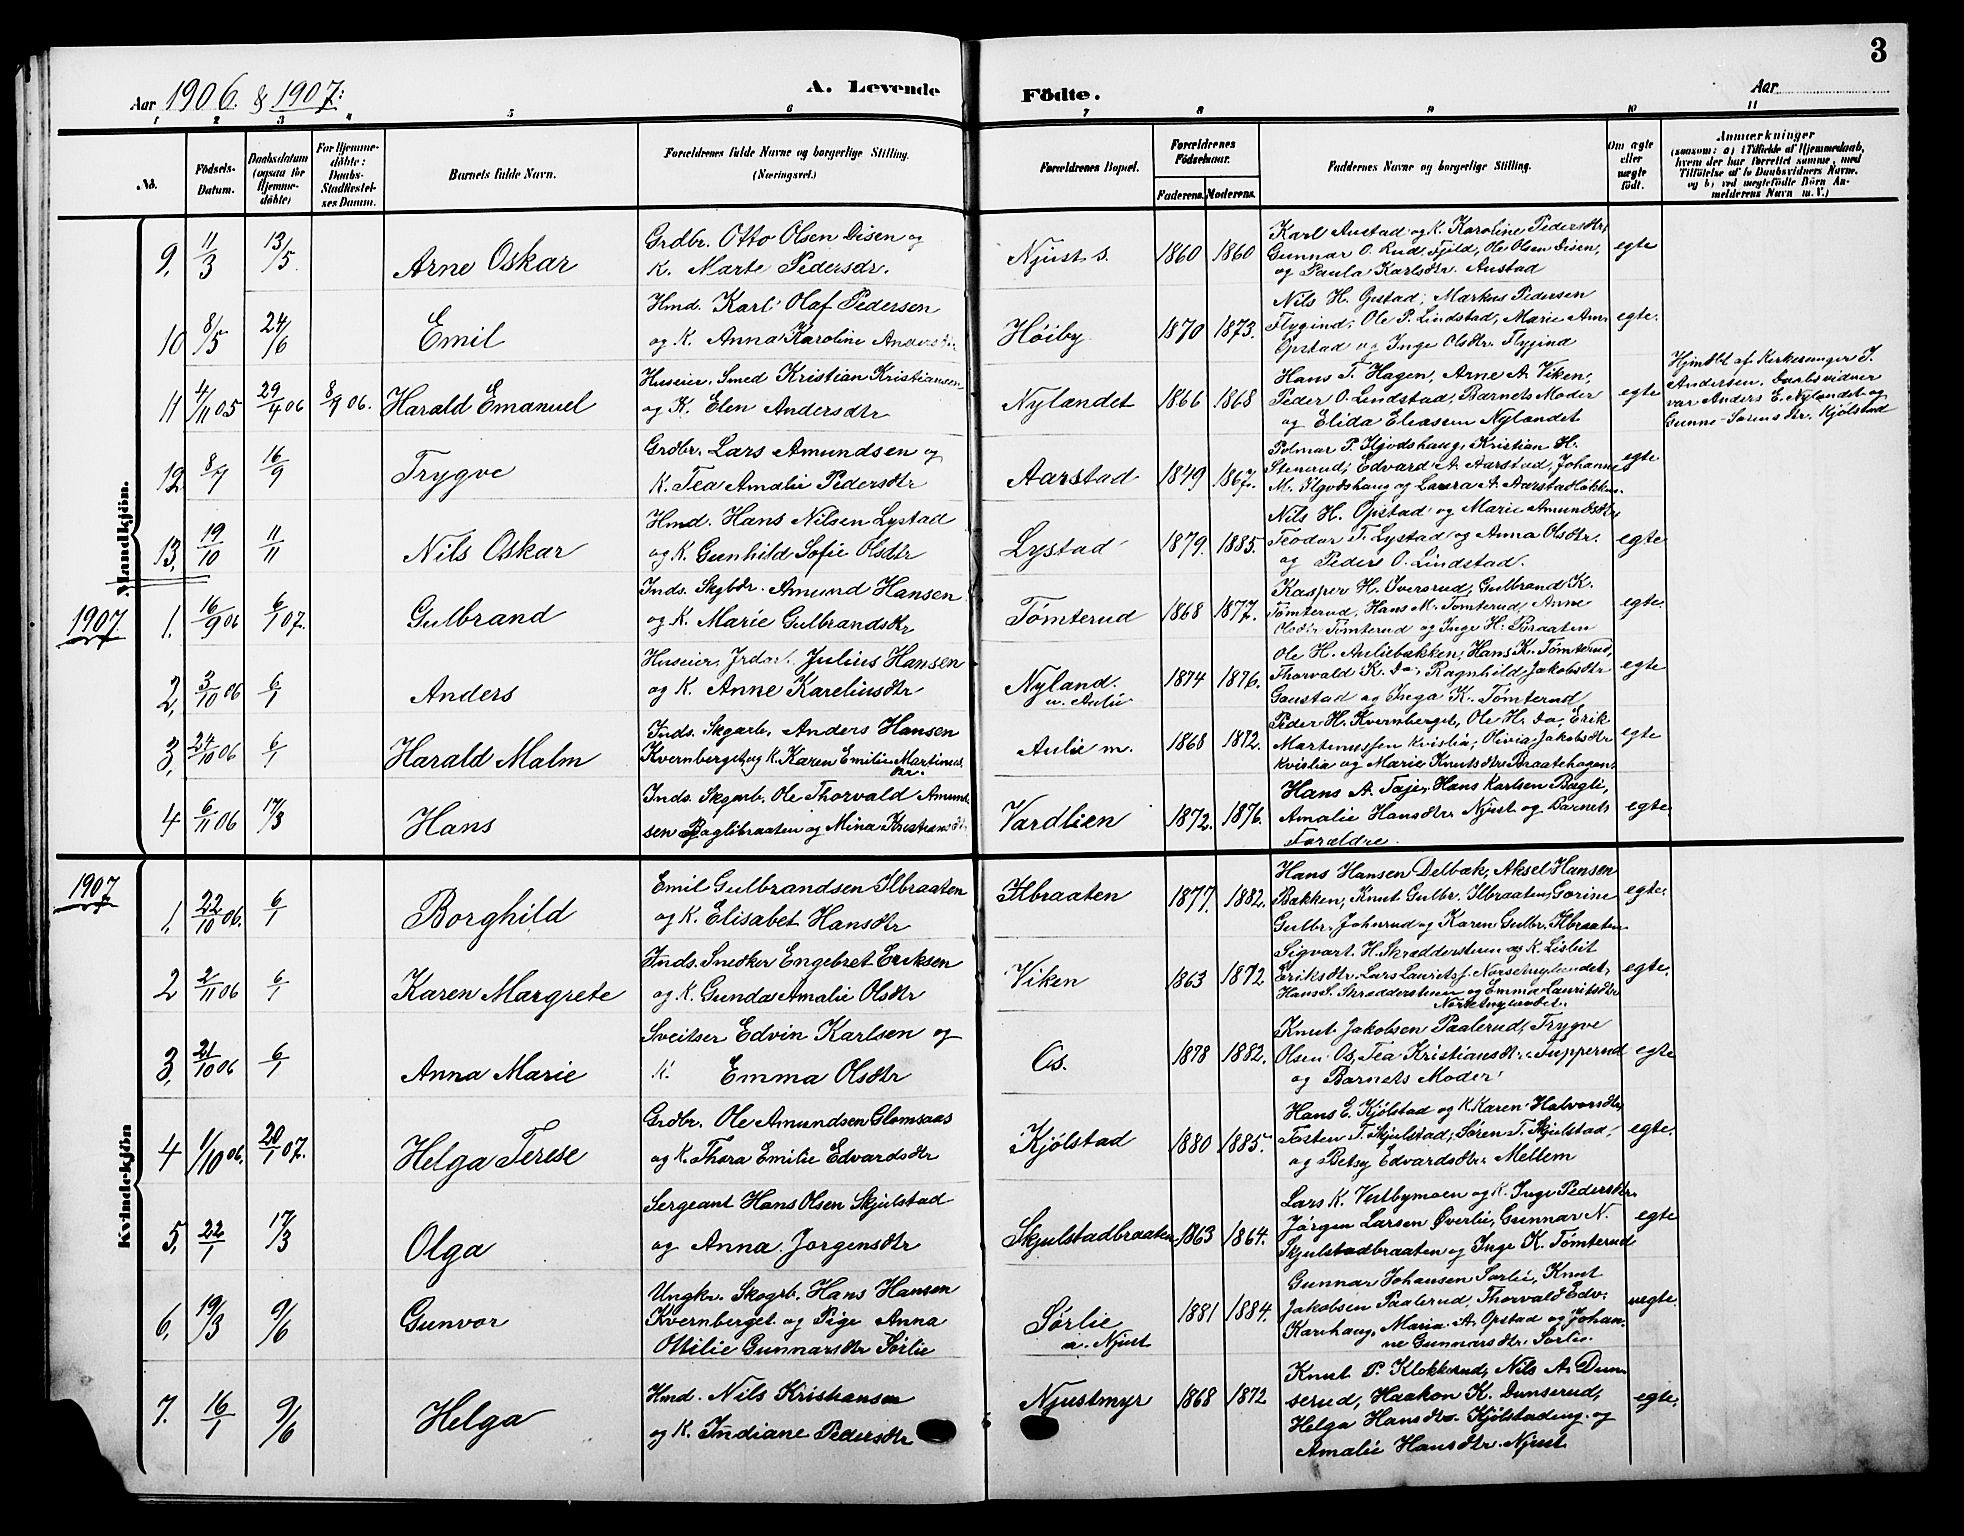 3
Aar 1906. & 1907:
A. Levende Födte.
Aar
1 2 3 4 5 6 7 8 9 10 11
No.
Födsels-Datum.
Daabsdatum (ogsaa for Hjemme-döbte)
For Hjemme-döbte: Daabs-Stadfæstel-ses Datum.
Barnets fulde Navn.
Forældrenes fulde Navne og borgerlige Stilling. (Næringsvei.)
Forældrenes Bopæl.
Forældrenes Födselsaar.
Faderens. Moderens.
Faddernes Navne og borgerlige Stilling.
Om ægte eller uægte födt.
Anmærkninger
(saasom: a) i Tilfælde af Hjemmedaab, hvem der har forrettet samme, med Tilföielse af to Daabsvidners Navne, og b) ved uægtefödte Börn An-melderens Navn m. V.)
Mandkjön.
9. 11/3 13/5 Arne Oskar
Grdbr. Otto Olsen Disen og
K. Marte Pedersdr.
Njust s. 1860 1860
Karl Austad og K. Karoline Pedersdtr,
Gunnar O. Rud, Fjeld, Ole Olsen Disen,
og Paula Karlsdtr. Austad
egte
10 8/5 24/6 Emil
Hmd. Karl Olaf Pedersen
og K. Anna Karoline Andersdtr
Höiby 1870 1873.
Nils H. Opstad, Markus Pedersen
Flygind; Ole P. Lindstad, Marie Am.
Opstad og Inge Olsdtr. Flygind
egte.
11 4/11 05 29/4 06 8/9 06. Harald Emanuel
Huseier. Smed Kristian Kristiansen
og K. Elen Andersdtr
Nylandet 1866 1868
Hans T. Hagen, Arne A. Viken,
Peder O. Lindstad, Barnets Moder
og Elida Eliasen Nylandet
egte
Hjmdbt af Kirkesanger J.
Andersen. Daabsvidner
var Anders E. Nylandet og
Gunne Sörensdtr. Kjölstad
12. 8/7 16/9 Trygve
Grdbr. Lars Amundsen og
K. Tea Amalie Pedersdtr
Aarstad 1849 1867.
Polmar P. Ilgodshaug, Kristian H.
Stenrud; Edvard A. Aarstad, Johanne
M. Ilgodshaug og Laura A. Aarstad
egte
13. 19/10 11/11 Nils Oskar
Hmd. Hans Nilsen Lystad
og K. Gunhild Sofie Olsdtr
Lystad 1879. 1885.
Nils H. Opstad og Marie Amundsdtr
Teodor T. Lystad og Anna Olsdtr.
og Peders O. Lindstad.
egte
1907
1. 16/9 06 6/1 07. Gulbrand
Inds. Skgbdr. Amund Hansen
og K. Marie Gulbrandsdtr
Tömterud 1868 1877.
Kasper H. Iversrud, Gulbrand K.
Tömterud, Hans M. Tömterud, Anne
Olsdtr Tömterud og Inge H. Braaten
egte.
2. 3/10 06 6/1 Anders
Huseier, Jrdar. Julius Hansen
og K. Anne Kareliusdtr
Nyland.
u. Aulie
1874 1876.
Ole H. Auliebakken, Hans K. Tömterud,
Thorvald K. do, Ragnhild Jakobsdtr
Gaustad og Inga K. Tömterud
egte
3. 24/10 06 6/1 Harald Malm
Inds. Skgarb. Anders Hansen
Kvernberget og K. Karen Emilie Martinus
dtr.
Aulie m. 1868 1872.
Peder H. Kvernberget, Ole H. do, Erik
Martinussen Kvislia; Olivia Jakobsdtr
Kvislia og Marie Knutsdtr Braatehagen.
egte
4 6/11 06 17/3 Hans
Inds. Skgarb. Ole Thorvald Amund
sen Baglibraaten og Mina Kristiansdtr
Vardlien 1872. 1876.
Hans A. Taje, Hans Karlsen Bagli,
Amalie Hansdtr. Njust og Barnets
Forældre.
egte.
1907
Kvindekjön
1. 22/10 06. 6/1 Borghild
Emil Gulbrandsen Ilbraaten
og K. Elisabet Hansdtr
Ilbraaten 1877. 1882.
Hans Hansen Delbæk, Aksel Hansen
Bakken, Knut Gulbr. Ilbraaten, Gorine
Gulbr. Johnrud og Karen Gulbr. Ilbraaten
egte.
2 2/11 06 6/1 Karen Margrete
Inds. Snedker Engebret Eriksen
og K. Gunda Amalie Olsdtr
Viken 1863 1872
Sigvart H. Skrædderstuen og K. Lisbit
Eriksdtr. Lars Lauritsf. Norsetnylandet,
Hans S. Skrædderstuen og Emma Lauritsdtr
Norsetnylandet.
egte.
3. 21/10 06 6/1 Anna Marie
Sveitser Edvin Karlsen og
K. Emma Olsdtr
Os. 1878 1882.
Knut Jakobsen Paalerud, Trygve
Olsen Os, Tea Kristiansdtr. Tupperud
og Barnets Moder
egte
4 1/10 06. 20/1 07. Helga Terese
Grdbr. Ole Amundsen Glomsaas
og K. Thora Emilie Edvardsdtr
Kjölstad 1880 1885.
Hans E. Kjölstad og K. Karen Halvorsdtr,
Tosten T. Skjulstad; Sören T. Skjulstad,
og Betsy Edvardsdtr. Mellem
egte.
5. 22/1 17/3 Olga
Sergeant Hans Olsen Skjulstad
og Anna Jorgensdtr
Skjulstadbraaten 1863 1864.
Lars K. Vestbymoen og K. Inge Pedersdtr.
Jörgen Larsen Överlie, Gunnar N.
Skjulstadbraaten og Inge K. Tömterud
egte
6. 19/3 9/6 Gunvor
Ungkr. Skogrb. Hans Hansen
Kvernberget og Pige Anna
Ottilie Gunnarsdtr Sörlie
Sörlie
u. Njust
1881 1884.
Gunnar Johansen Sörlie, Knut
Jakobsen Paalerud, Thorvald Edv.
Karihaug, Maria A. Opstad og Johan-
ne Gunnarsdtr. Sörlie.
uegte.
7. 16/1 9/6 Helga
Hmd. Nils Kristiansen
og K. Indiane Pedersdtr
Njustmyr 1868 1872
Knut P. Klokkerud, Nils A. Dun-
serud, Haakon K. Dunserud,
Helga Hansdtr. Kjölstadeng. og
Amalie Hansdtr. Njust
egte.